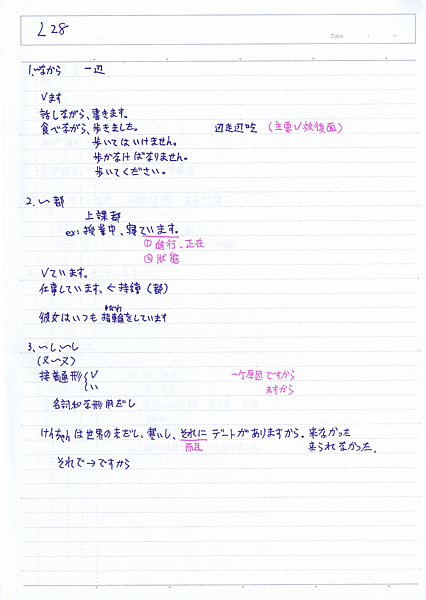 L 28
Date
1. 〜ながら 一边
Vます
話しながら、書きます。
食べながら、歩きました。 边走边吃 (主要V放後面)
歩いてはいけません。
歩かなければなりません。
歩いてください。
2. 〜都
上課都
ex: 授業中、寝ています。
① 進行、正在
② 狀態
Vています。
仕事しています、← 持續(都)
彼女はいつも指輪をしています
ゆびわ
3. 〜し、〜し
(又〜又)
接普通形 V 一ケ原因ですから
い ますから
名詞和な形用だし
は世界の末だし、寒いし、それに デートがありますから。来なかった
而且 来られなかった.
それで→ですから